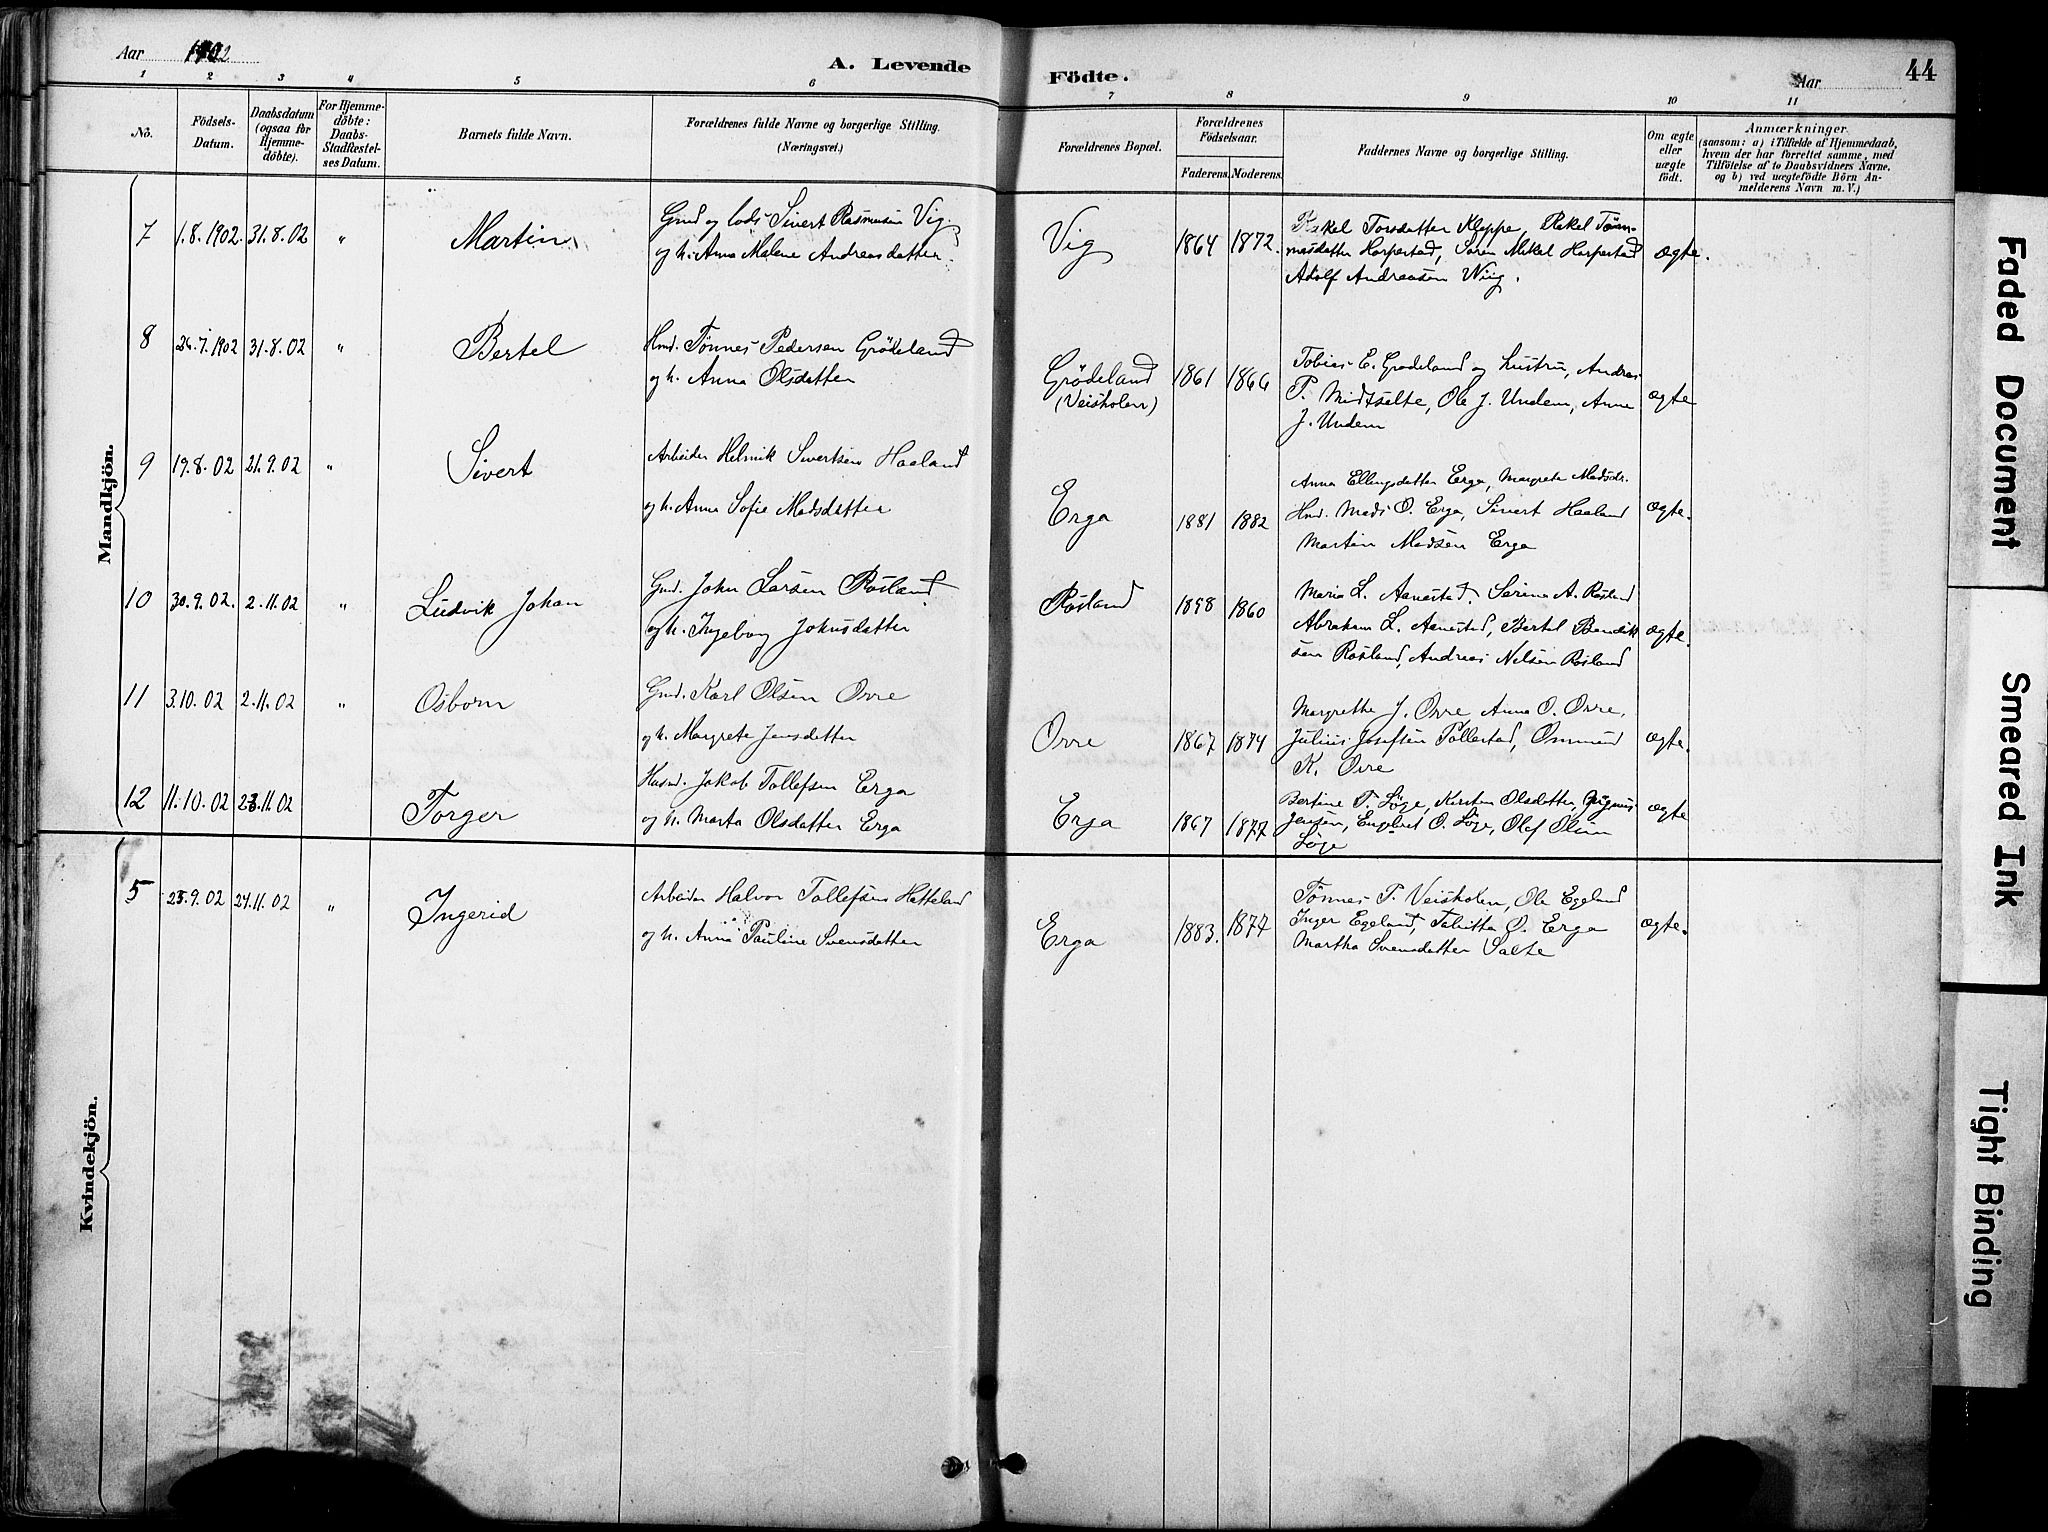 Aar 1902
A. Levende Födte.
Aar
44
1 2 3 4 5 6 7 8 9 10 11
No.
Födsels-Datum.
Daabsdatum (ogsaa for Hjemme-döbte).
For Hjemme-döbte: Daabs-Stadfæstel-ses Datum.
Barnets fulde Navn.
Forældrenes fulde Navne og borgerlige Stilling.
(Næringsvei.)
Forældrenes Bopæl.
Forældrenes Födselsaar.
Faderens. Moderens.
Faddernes Navne og borgerlige Stilling.
Om ægte eller uægte födt.
Anmærkninger.
(saasom: a) i Tilfælde af Hjemmedaab,
hvem der har forrettet samme, med
Tilföielse af to Daabsvidners Navne.
og b) ved uægtefödte Börn An-
melderens Navn m. V.)
Mandkjön.
7 1.8.1902. 31.8.02 " Martin
Gmd og lods Sivert Rasmusen Vig.
og h. Anna Malene Andreasdatter.
Vig 1864 1872.
Rakel Torsdatter Kleppe, Rakel Tøn-
nesdatter Harpestad, Søren Mikel Harpestad
Adolf Andreasen Wiig.
ægte.
8 26.7.1902 31.8.02 " Bertel
Hmd. Tönnes Pedersen Grödeland
og h. Anna Olsdatter
Grödeland
(Veisholen)
1861 1866
Tobias E. Grødeland og hustru, Andreas
P. Midtselte, Ole J. Undem, Anne
J. Undem
ægte
9 19.8.02 21.9.02 " Sivert
Arbeider Helmik Sivertsen Haaland
og h. Anna Sofie Madsdatter
Erga 1881 1882
Anna Ellingsdatter Erga, Margrete Madsdr.
Hmd. Mads O. Erga, Sivert Haaland
Martin Madsen Erga
ægte.
10 30.9.02. 2.11.02 " Ludvik Johan
Gmd. John Larsen Rosland
og h. Ingeborg Johnsdatter
Rosland 1858 1860
Maria L. Aanestad. Serina A. Rosland
Abraham L. Aanestad, Bertel Bendik
sen Rosland, Andreas Nilsen Rosland
ægte.
11 3.10.02 2.11.02 " Osborn
Gmd. Karl Olsen Orre
og h. Margrete Jensdatter
Orre 1867 1874
Margrethe J. Orre Anna O. Orre,
Julius Josefsen Tollestad, Osmund
K. Orre
ægte.
12 11.10.02 23.11.02 Torger
Husmd. Jakob Tollefsen Erga
og h. Marta Olsdatter Erga
Erga 1867 1877
Bertine T. Söge, Kirsten Olsdatter,
Jensen, Engebret O. Söge, Olaf Olsen
Söge
ægte
Kvindekjön.
5 25.9.02 24.11.02 " Ingerid
Arbeider Halvor Tollefsen Hatteland
og h. Anna Pauline Svensdatter
Erga 1883. 1877
Tönnes P. Veisholen, Ole Egeland
Inger Egeland, Tabitta O. Erga
Martha Svensdatter Salte
ægte.
Faded Document
Smeared Ink
Tight Binding